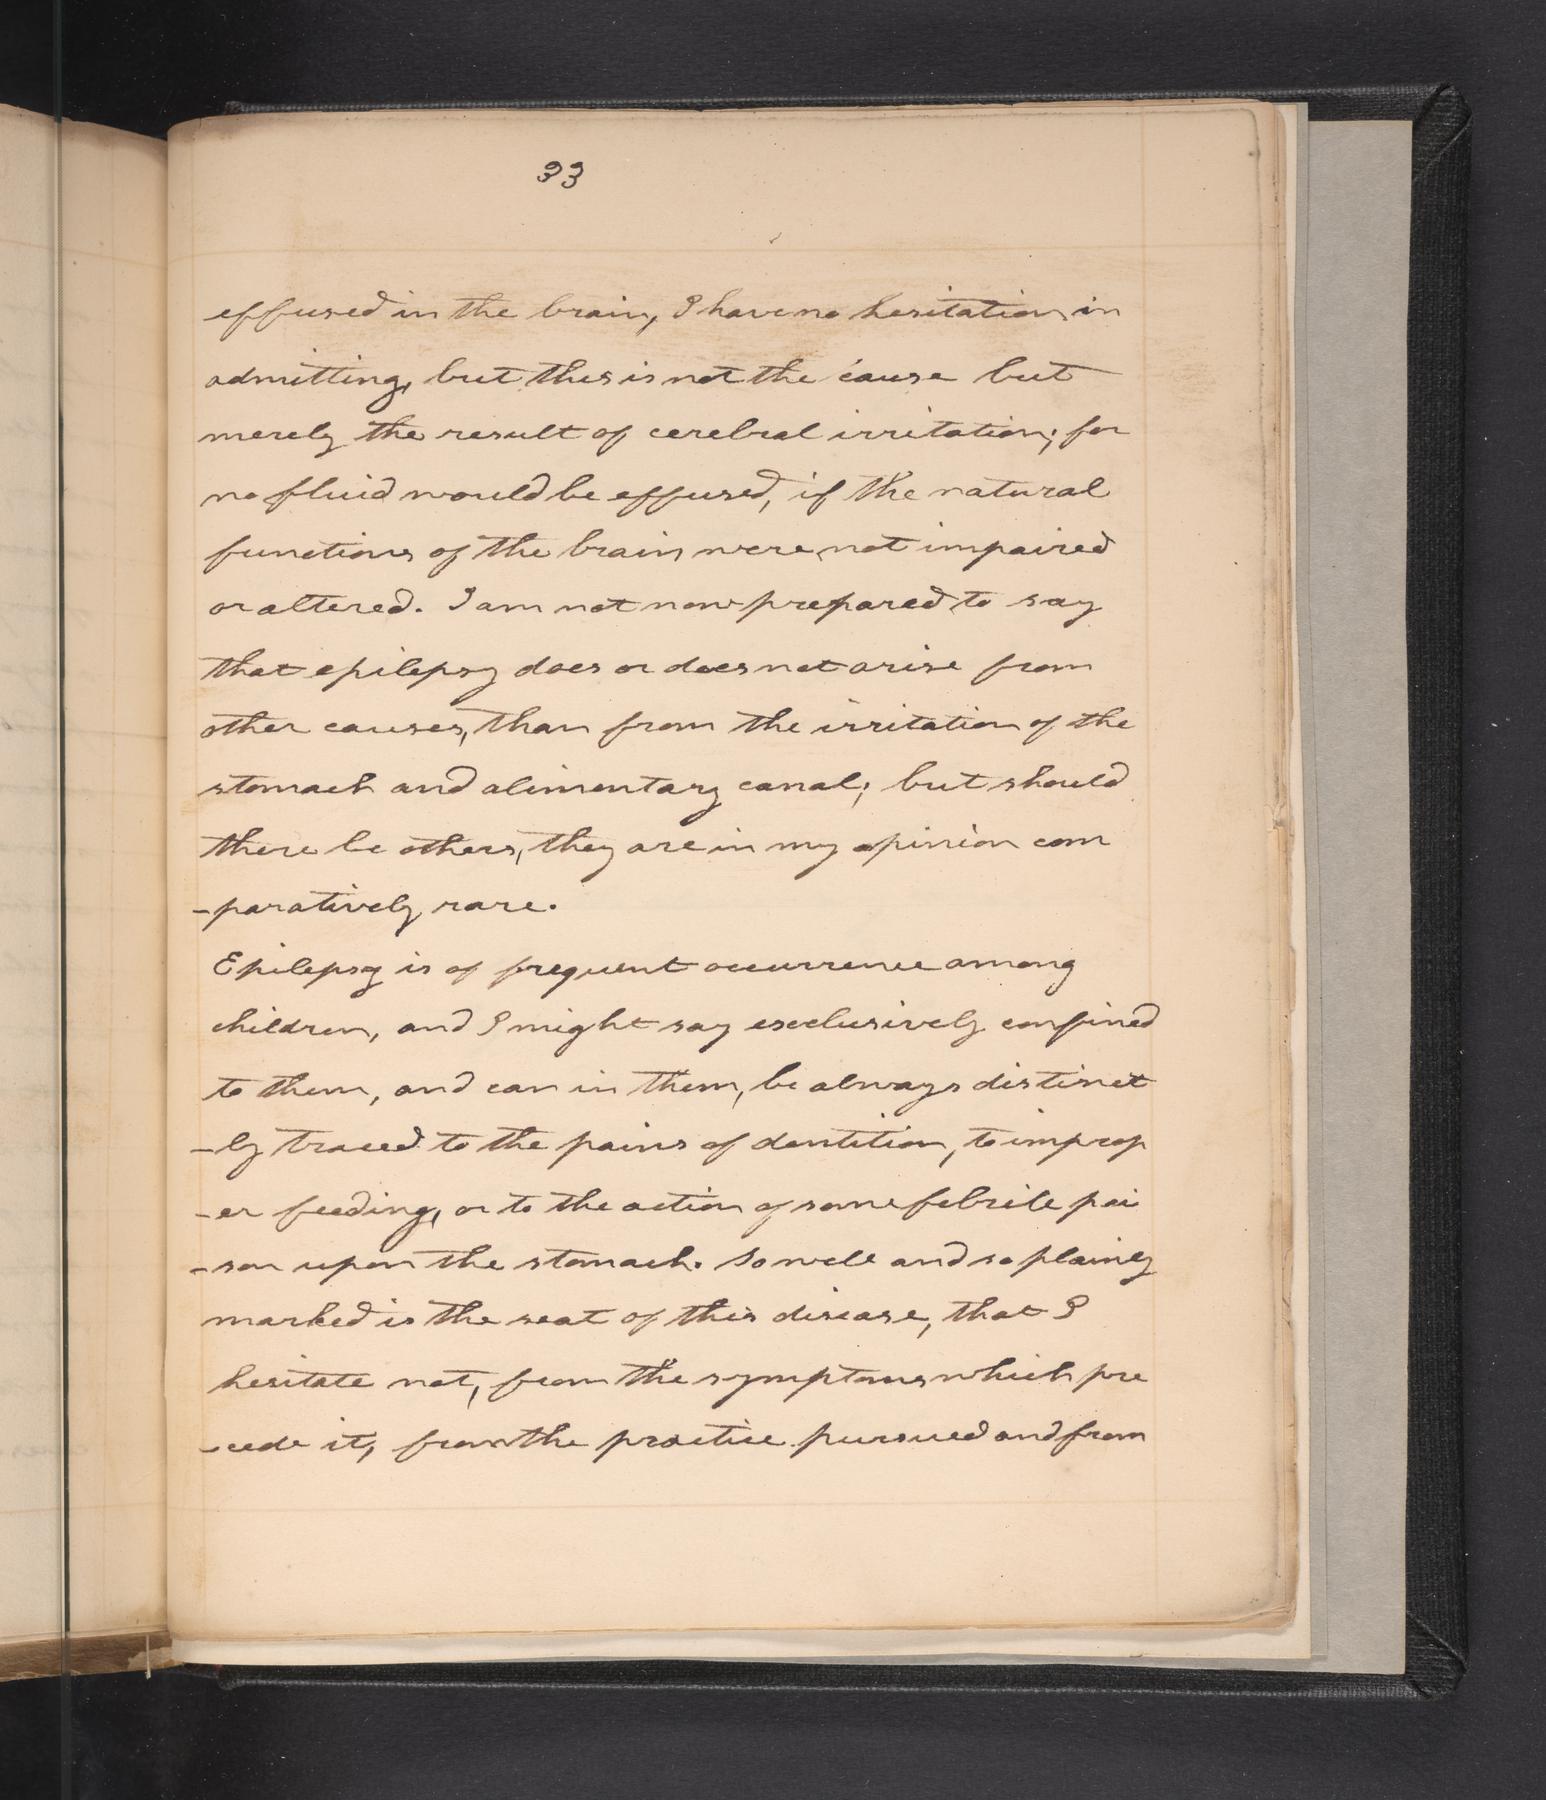 33
effused in the brain, I have no hesitation in
admitting, but this is not the cause but
merely the result of cerebral irritation; for
no fluid would be effused, if the natural
functions of the brain were not impaired
or altered. I am not now prepared to say
that epilepsy does or does not arise from
other causes, than from the irritation of the
stomach and alimentary canal; but should
there be others, they are in my opinion com
-paratively rare.
Epilepsy is of frequent occurrence among
children, and I might say exclusively confined
to them, and can in them, be always distinct
-ly traced to the pains of dentition, to improp
-er feeding, or to the action of some febrile poi
-son upon the stomach. So well and so plainly
marked is the seat of this disease, that I
hesitate not, from the symptoms which pre
-cede it, from the practice pursued and from